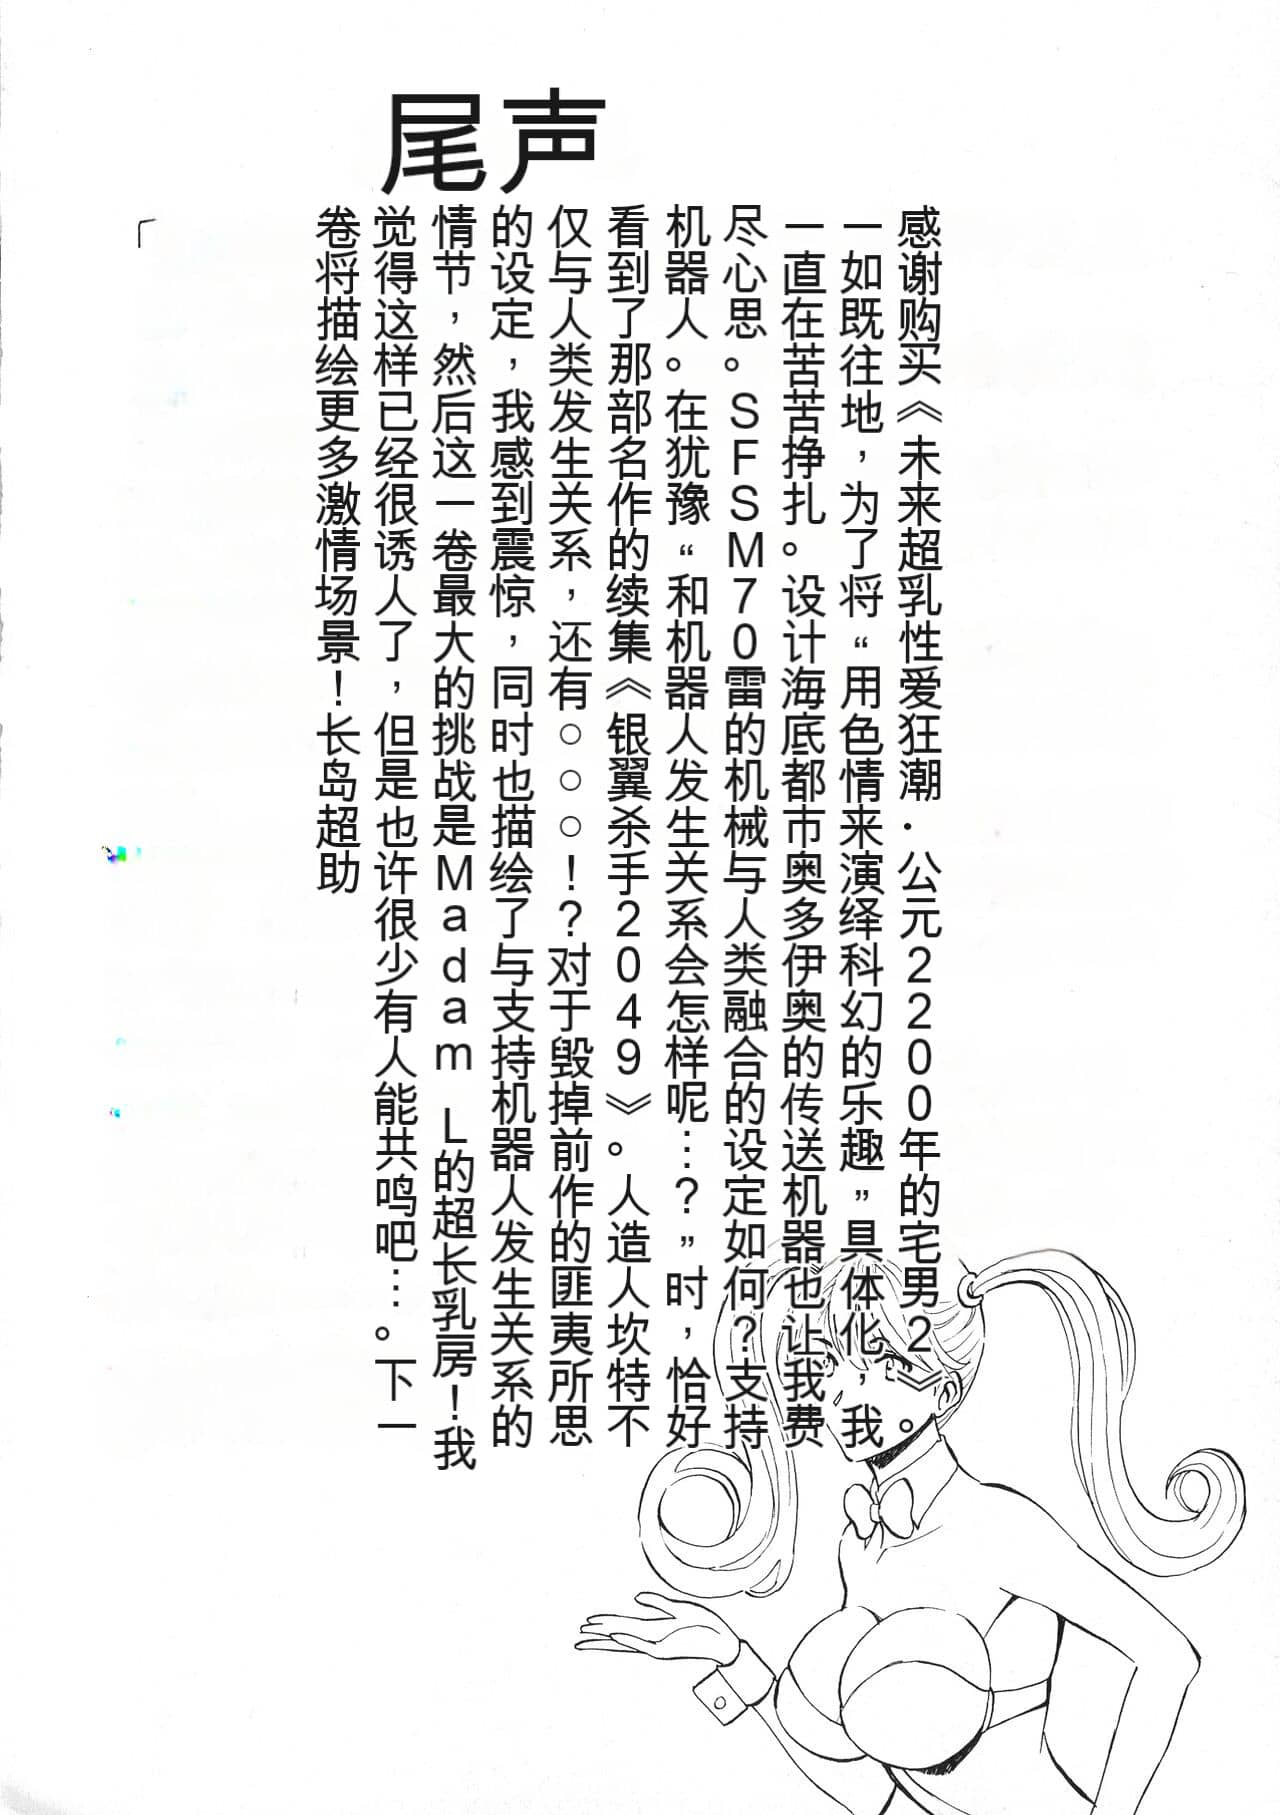 尾声
感谢购买《未来超乳性爱狂潮·公元2200年的宅男2》。
一如既往地，为了将“用色情来演绎科幻的乐趣”具体化，我
一直在苦苦挣扎。设计海底都市奥多伊奥的传送机器也让我费
尽心思。SFSM70雷的机械与人类融合的设定如何？支持
机器人。在犹豫“和机器人发生关系会怎样呢…？”时，恰好
看到了那部名作的续集《银翼杀手2049》。人造人坎特不
仅与人类发生关系，还有○○○！？对于毁掉前作的匪夷所思
的设定，我感到震惊，同时也描绘了与支持机器人发生关系的
情节，然后这一卷最大的挑战是Madam L的超长乳房！我
觉得这样已经很诱人了，但是也许很少有人能共鸣吧…。下一
卷将描绘更多激情场景！长岛超助